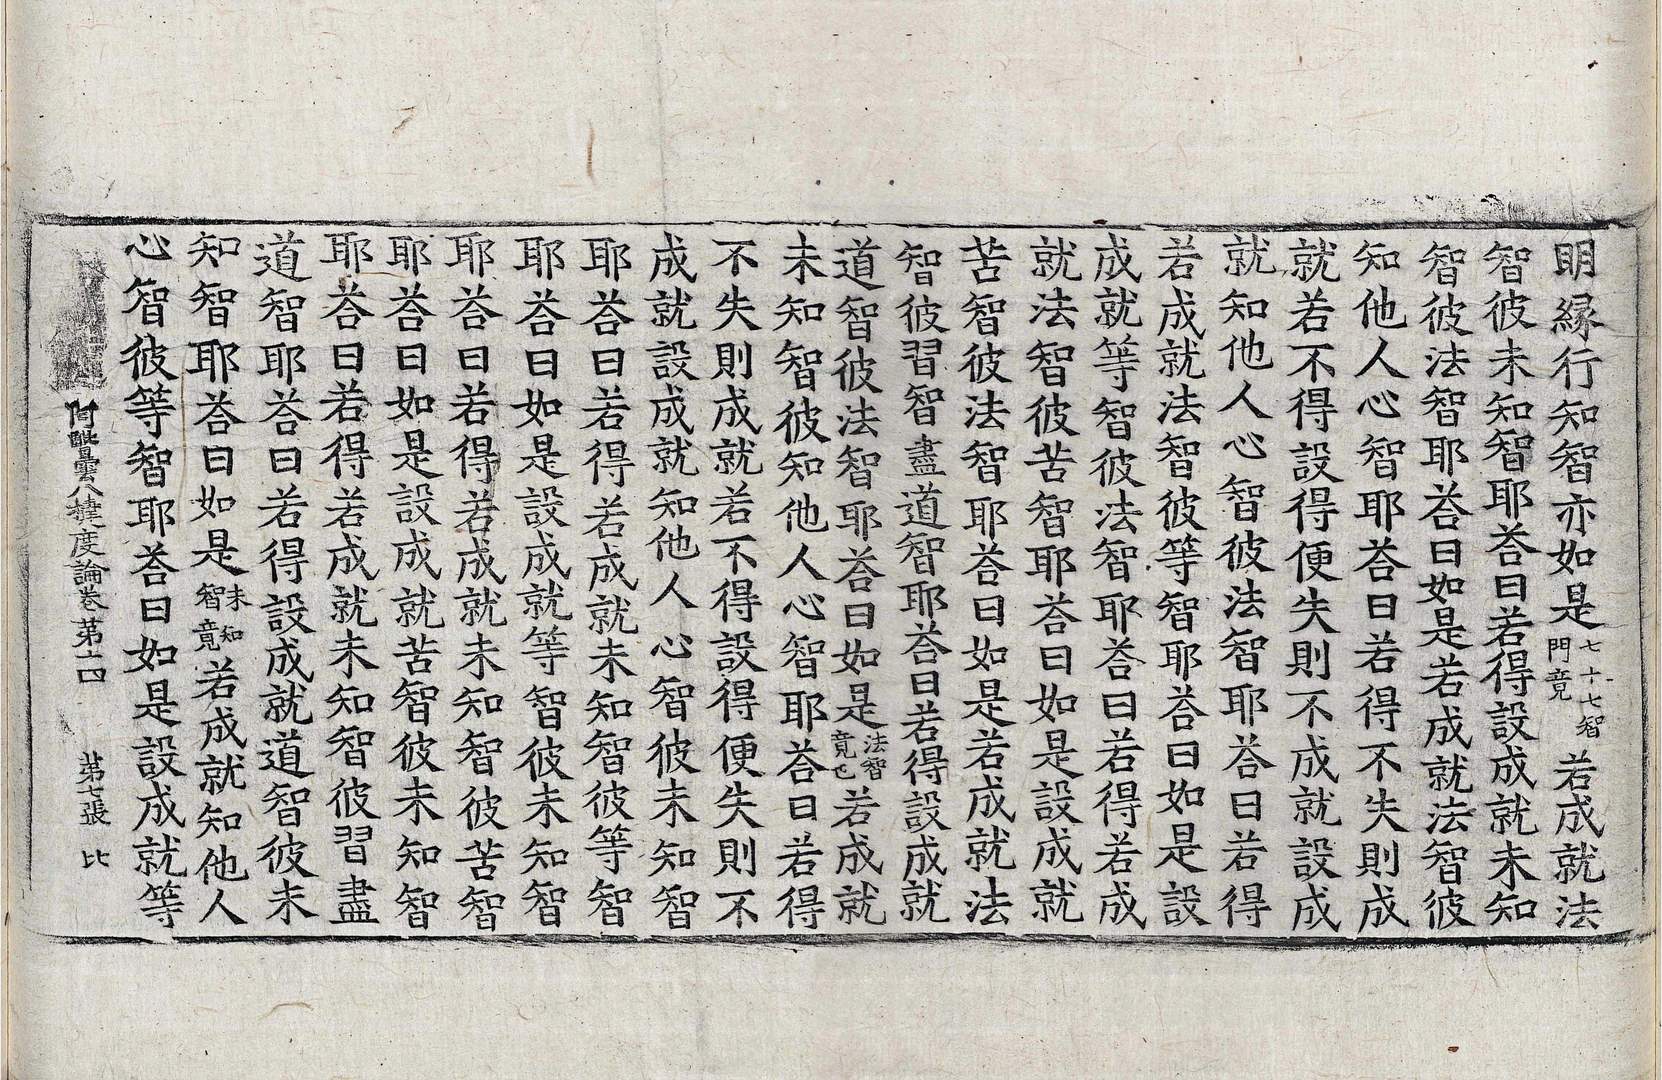 明縁行知智亦如是七十七智門竟若成就法
智彼未知智耶荅曰若得設成就未知
智彼法智耶荅曰如是若成就法智彼
知他人心智耶荅曰若得不失則成
就若不得設得便失則不成就設成
就知他人心智彼法智耶荅曰若得
若成就法智彼等智耶荅曰如是設
成就等智彼法智耶荅曰若得若成
就法智彼苦智耶荅曰如是設成就
苦智彼法智耶荅曰如是若成就法
智彼習智盡道智耶荅曰若得設成就
道智彼法智耶荅曰如是法智竟也若成就
未知智彼知他人心智耶荅曰若得
不失則成就若不得設得便失則不
成就設成就知他人心智彼未知智
耶荅曰若得若成就未知智彼等智
耶荅曰如是設成就等智彼未知智
耶荅曰若得若成就未知智彼苦智
耶荅曰如是設成就苦智彼未知智
耶荅曰若得若成就未知智彼習盡
道智耶荅曰若得設成就道智彼未
知智耶荅曰如是未知智竟若成就知他人
心智彼等智耶荅曰如是設成就等
阿毗曇八揵度論卷第十四 第七張 比